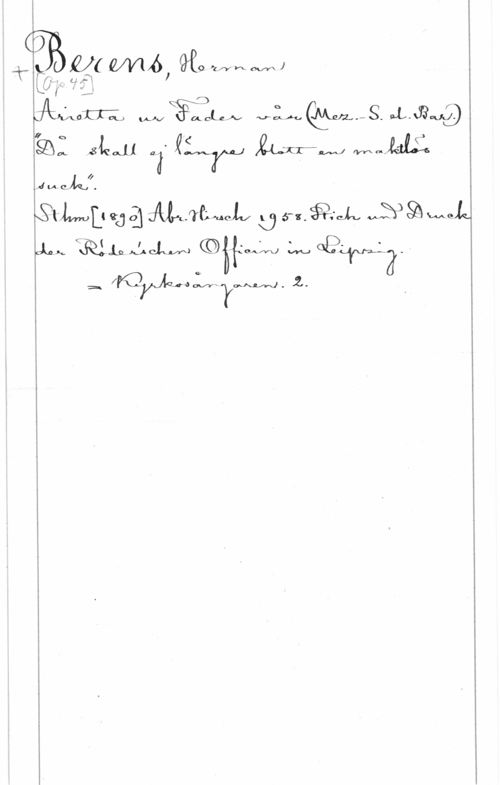 + Berens, Herman
[Op 45]
Arietta ur Fader vår (Mez.-S. el. Bar.)
"Då skall ej längre blott en maktlös
suck".
Sthm [1890] Abr. Hirsch 1958. Stich und Druck
der Röder'schen Officin in Leipzig.
= Kyrkosångaren. 2.